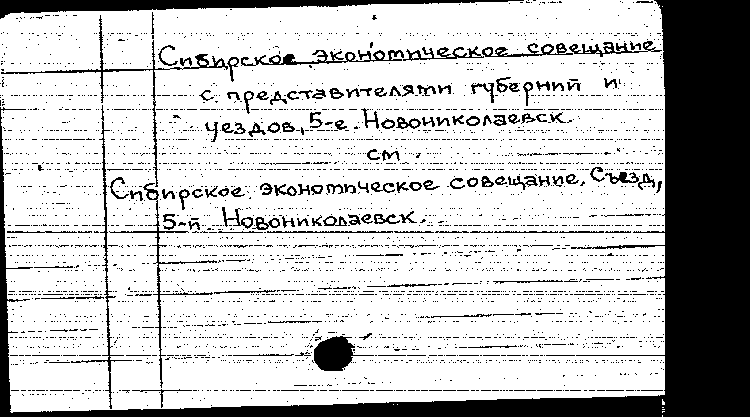 Сибирское экономическое совещание
с представителями губерний и
уездов, 5-е. Новониколаевск.
см.
Сибирское экономическое совещание. Съезд,
5-й Новониколаевск.